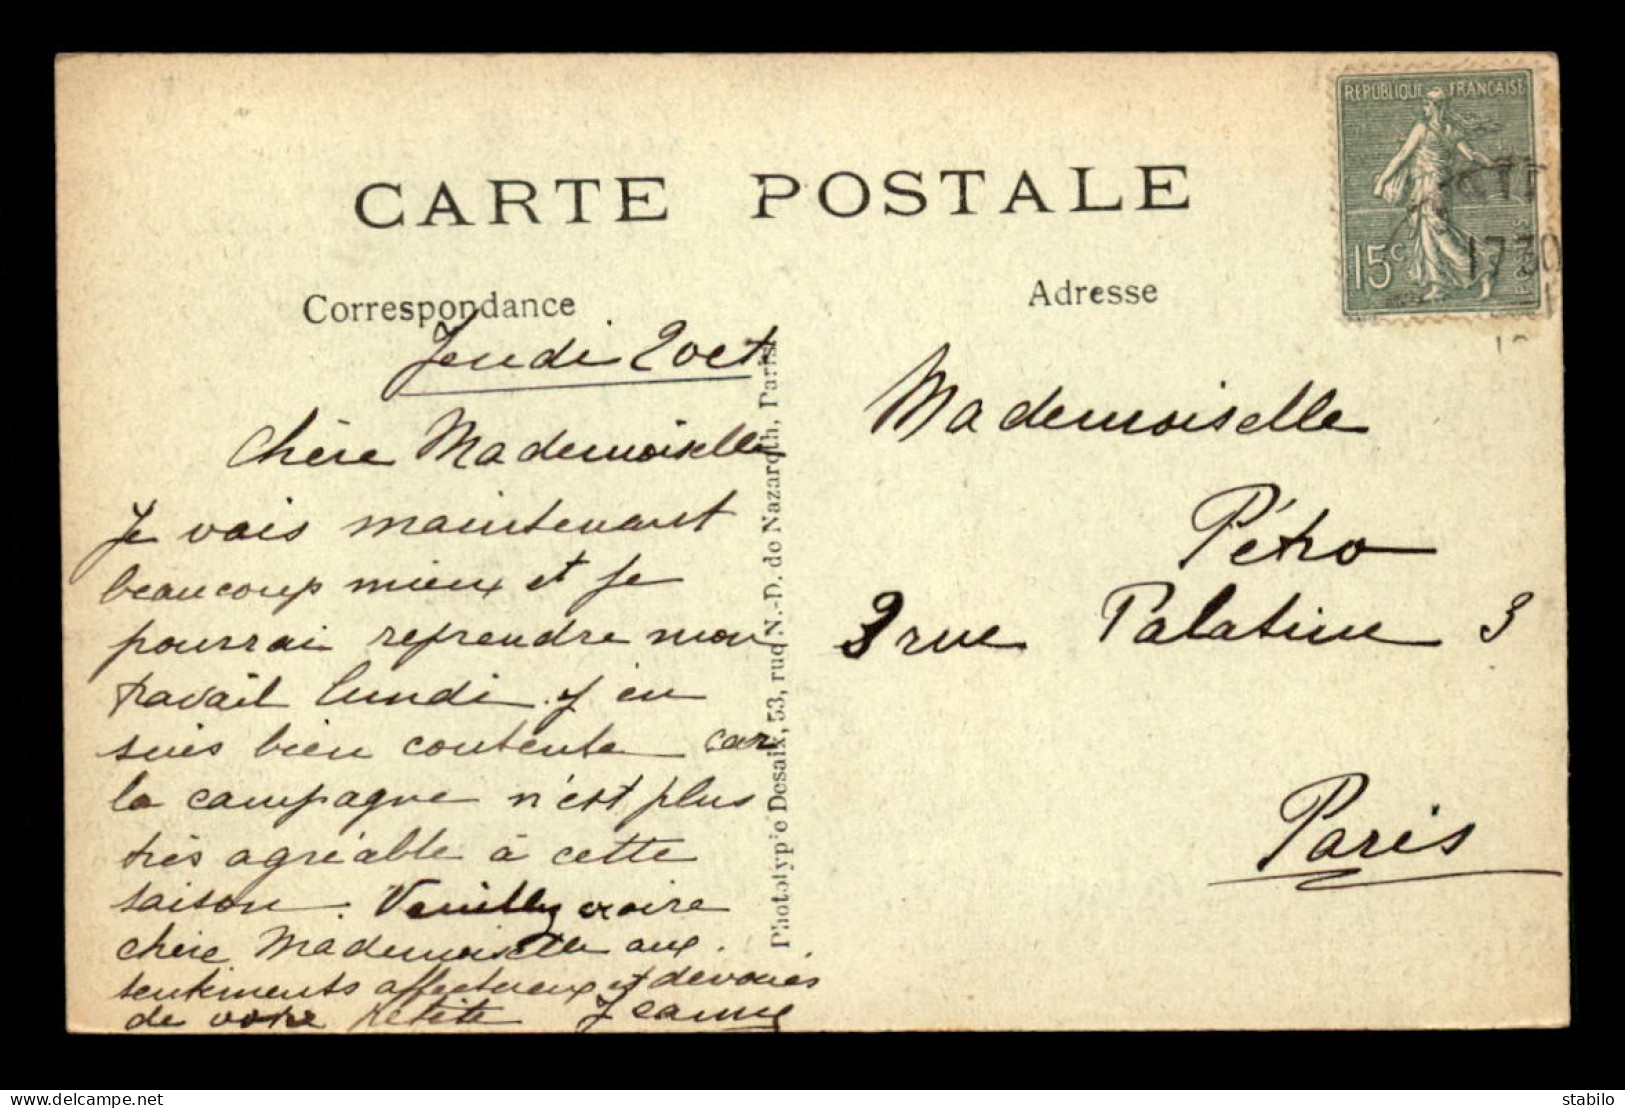 REPUBLIQUE FRANÇAISE
15c
1730
CARTE POSTALE
Correspondance
Adresse
Jeudi 2 oct
Chère Mademoiselle
Je vais maintenant
beaucoup mieux et je
pourrai reprendre mon
travail lundi. j'en
suis bien contente car
la campagne n'est plus
très agréable à cette
saison. Veuillez croire
chère Mademoiselle aux
sentiments affectueux et dévoués
de votre petite Jeanne
Phototypie Desaix, 53, rue N.-D. de Nazareth, Paris
Mademoiselle
Pétro
3 rue Palatine 3
Paris
delcampe.net
stabilo